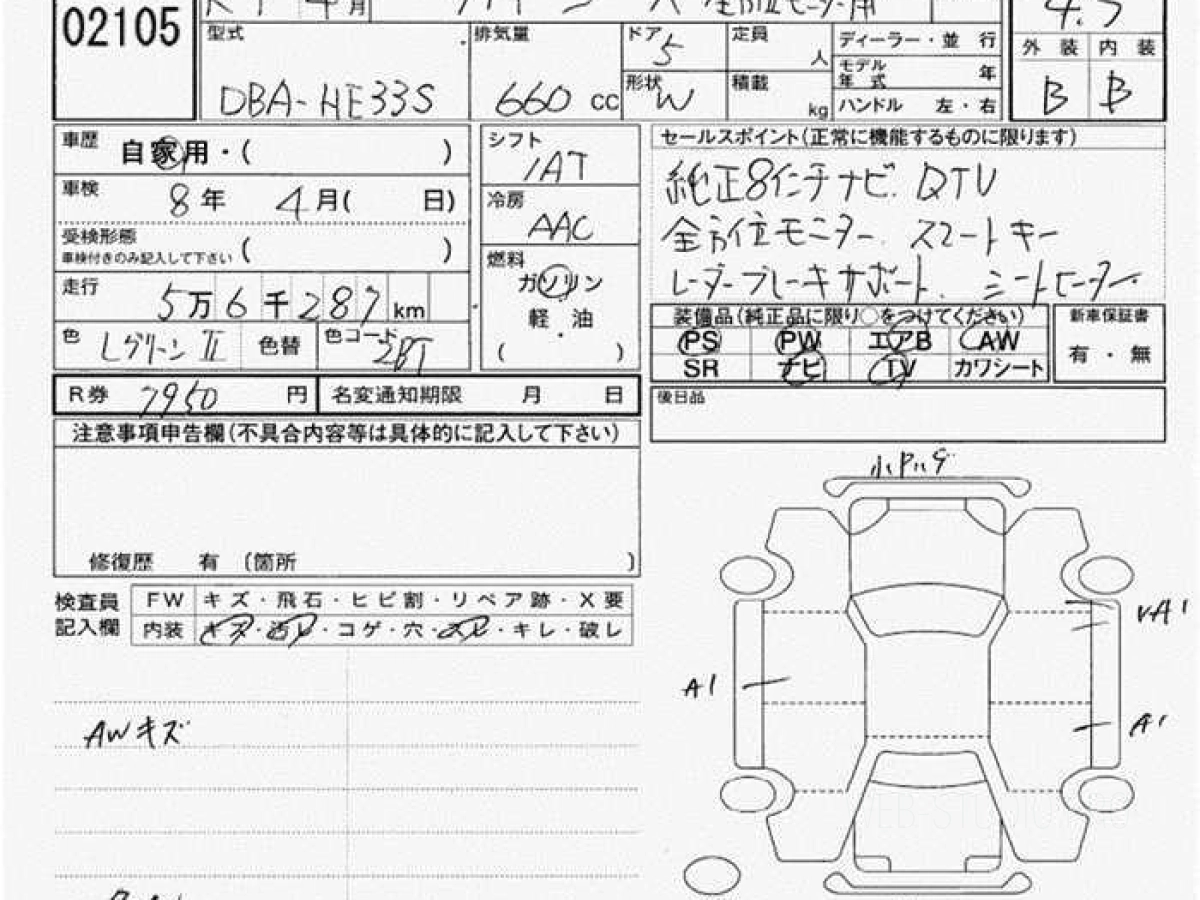 02105
型式 DBA-HE33S
排気量 660 cc
ドア 5
形状 W
定員 人
積載 kg
ディーラー・並 行
モデル年 式 年
ハンドル 左・右
4.5
外 装 内 装
B B
車歴 自家用・( )
車検 8年 4月( 日)
受検形態
車検付きのみ記入して下さい ( )
走行 5万6千287 km
色 Lグリーン II 色替 色コード ZBT
シフト IAT
冷房 AAC
燃料
ガソリン
・
軽 油
( )
セールスポイント(正常に機能するものに限ります)
純正8インチナビ. DTV
全方位モニター. スマートキー
レーダーブレーキサポート. シートヒーター
装備品(純正品に限り○をつけてください)
PS PW エアB AW
SR ナビ TV カワシート
新車保証書
有・無
R券 7950 円 名変通知期限 月 日
後日品
注意事項申告欄(不具合内容等は具体的に記入して下さい)
修復歴 有 (箇所 )
検査員
記入欄
FW キズ・飛石・ヒビ割・リペア跡・X要
内装 キズ・汚レ・コゲ・穴・スレ・キレ・破レ
AWキズ
A1
A1